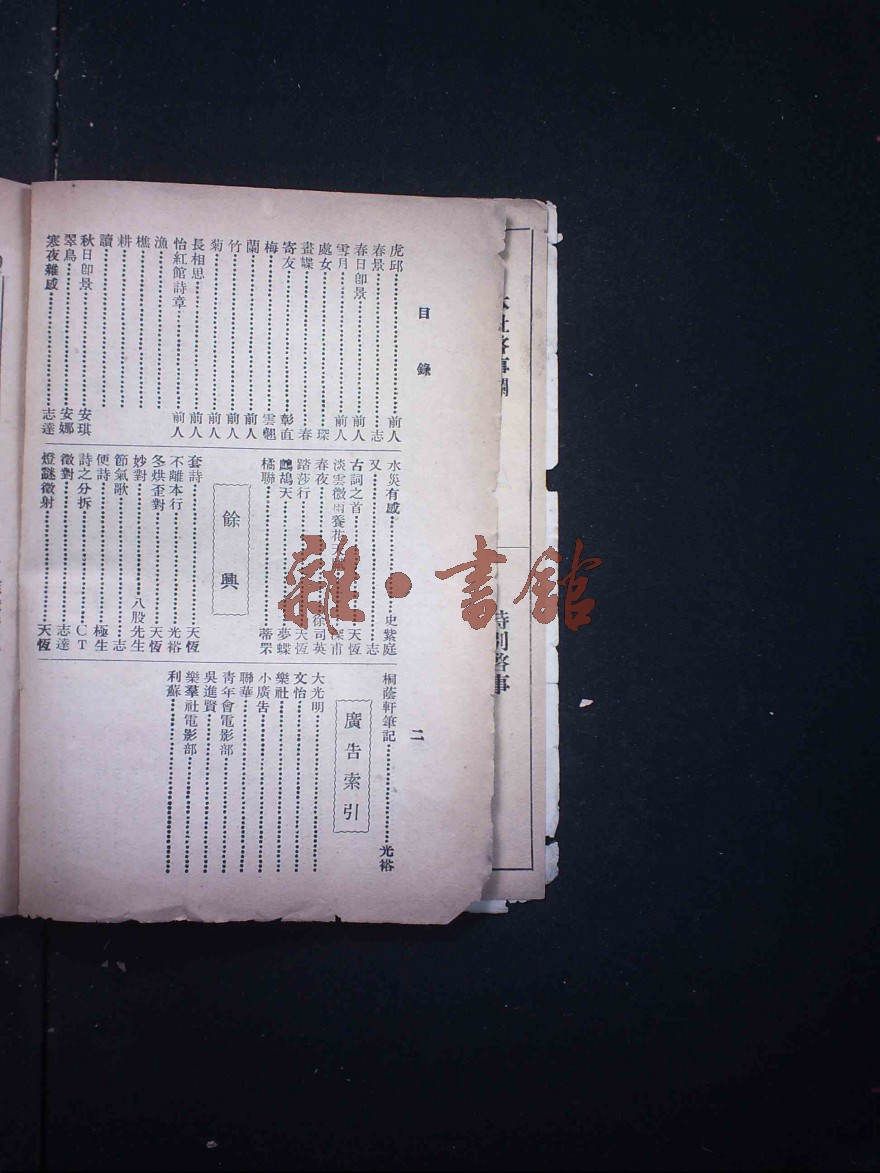 目錄
二
虎邱……前人
春景……志
春日卽景……前人
雪月……前人
處女……琛
畫諜……春
寄友……彰直
梅……雲翹
蘭……前人
竹……前人
菊……前人
長相思……前人
怡紅館詩章……前人
漁……
樵……
耕……
讀……
秋日卽景……安琪
翠鳥……安娜
寒夜雜感……志達
水災有感……史紫庭
又……志
古詞之首……天恆
淡雲微雨養花天……琛甫
春夜……徐司英
踏莎行……天恆
鷓鴣天……夢蝶
橘聯……蒂罘
餘興
套詩……天恆
不離本行……光裕
冬烘歪對……天恆
妙對……八股先生
節氣歌……志
便詩……極生
詩之分拆……CT
徵對……志達
燈謎徵射……天恆
桐蔭軒筆記……光裕
廣告索引
大光明……
文怡……
樂社……
小廣告……
聯華……
靑年會電影部……
吳進賢……
樂羣社電影部……
利蘇……
雜·書館
社啓事
特別啓事